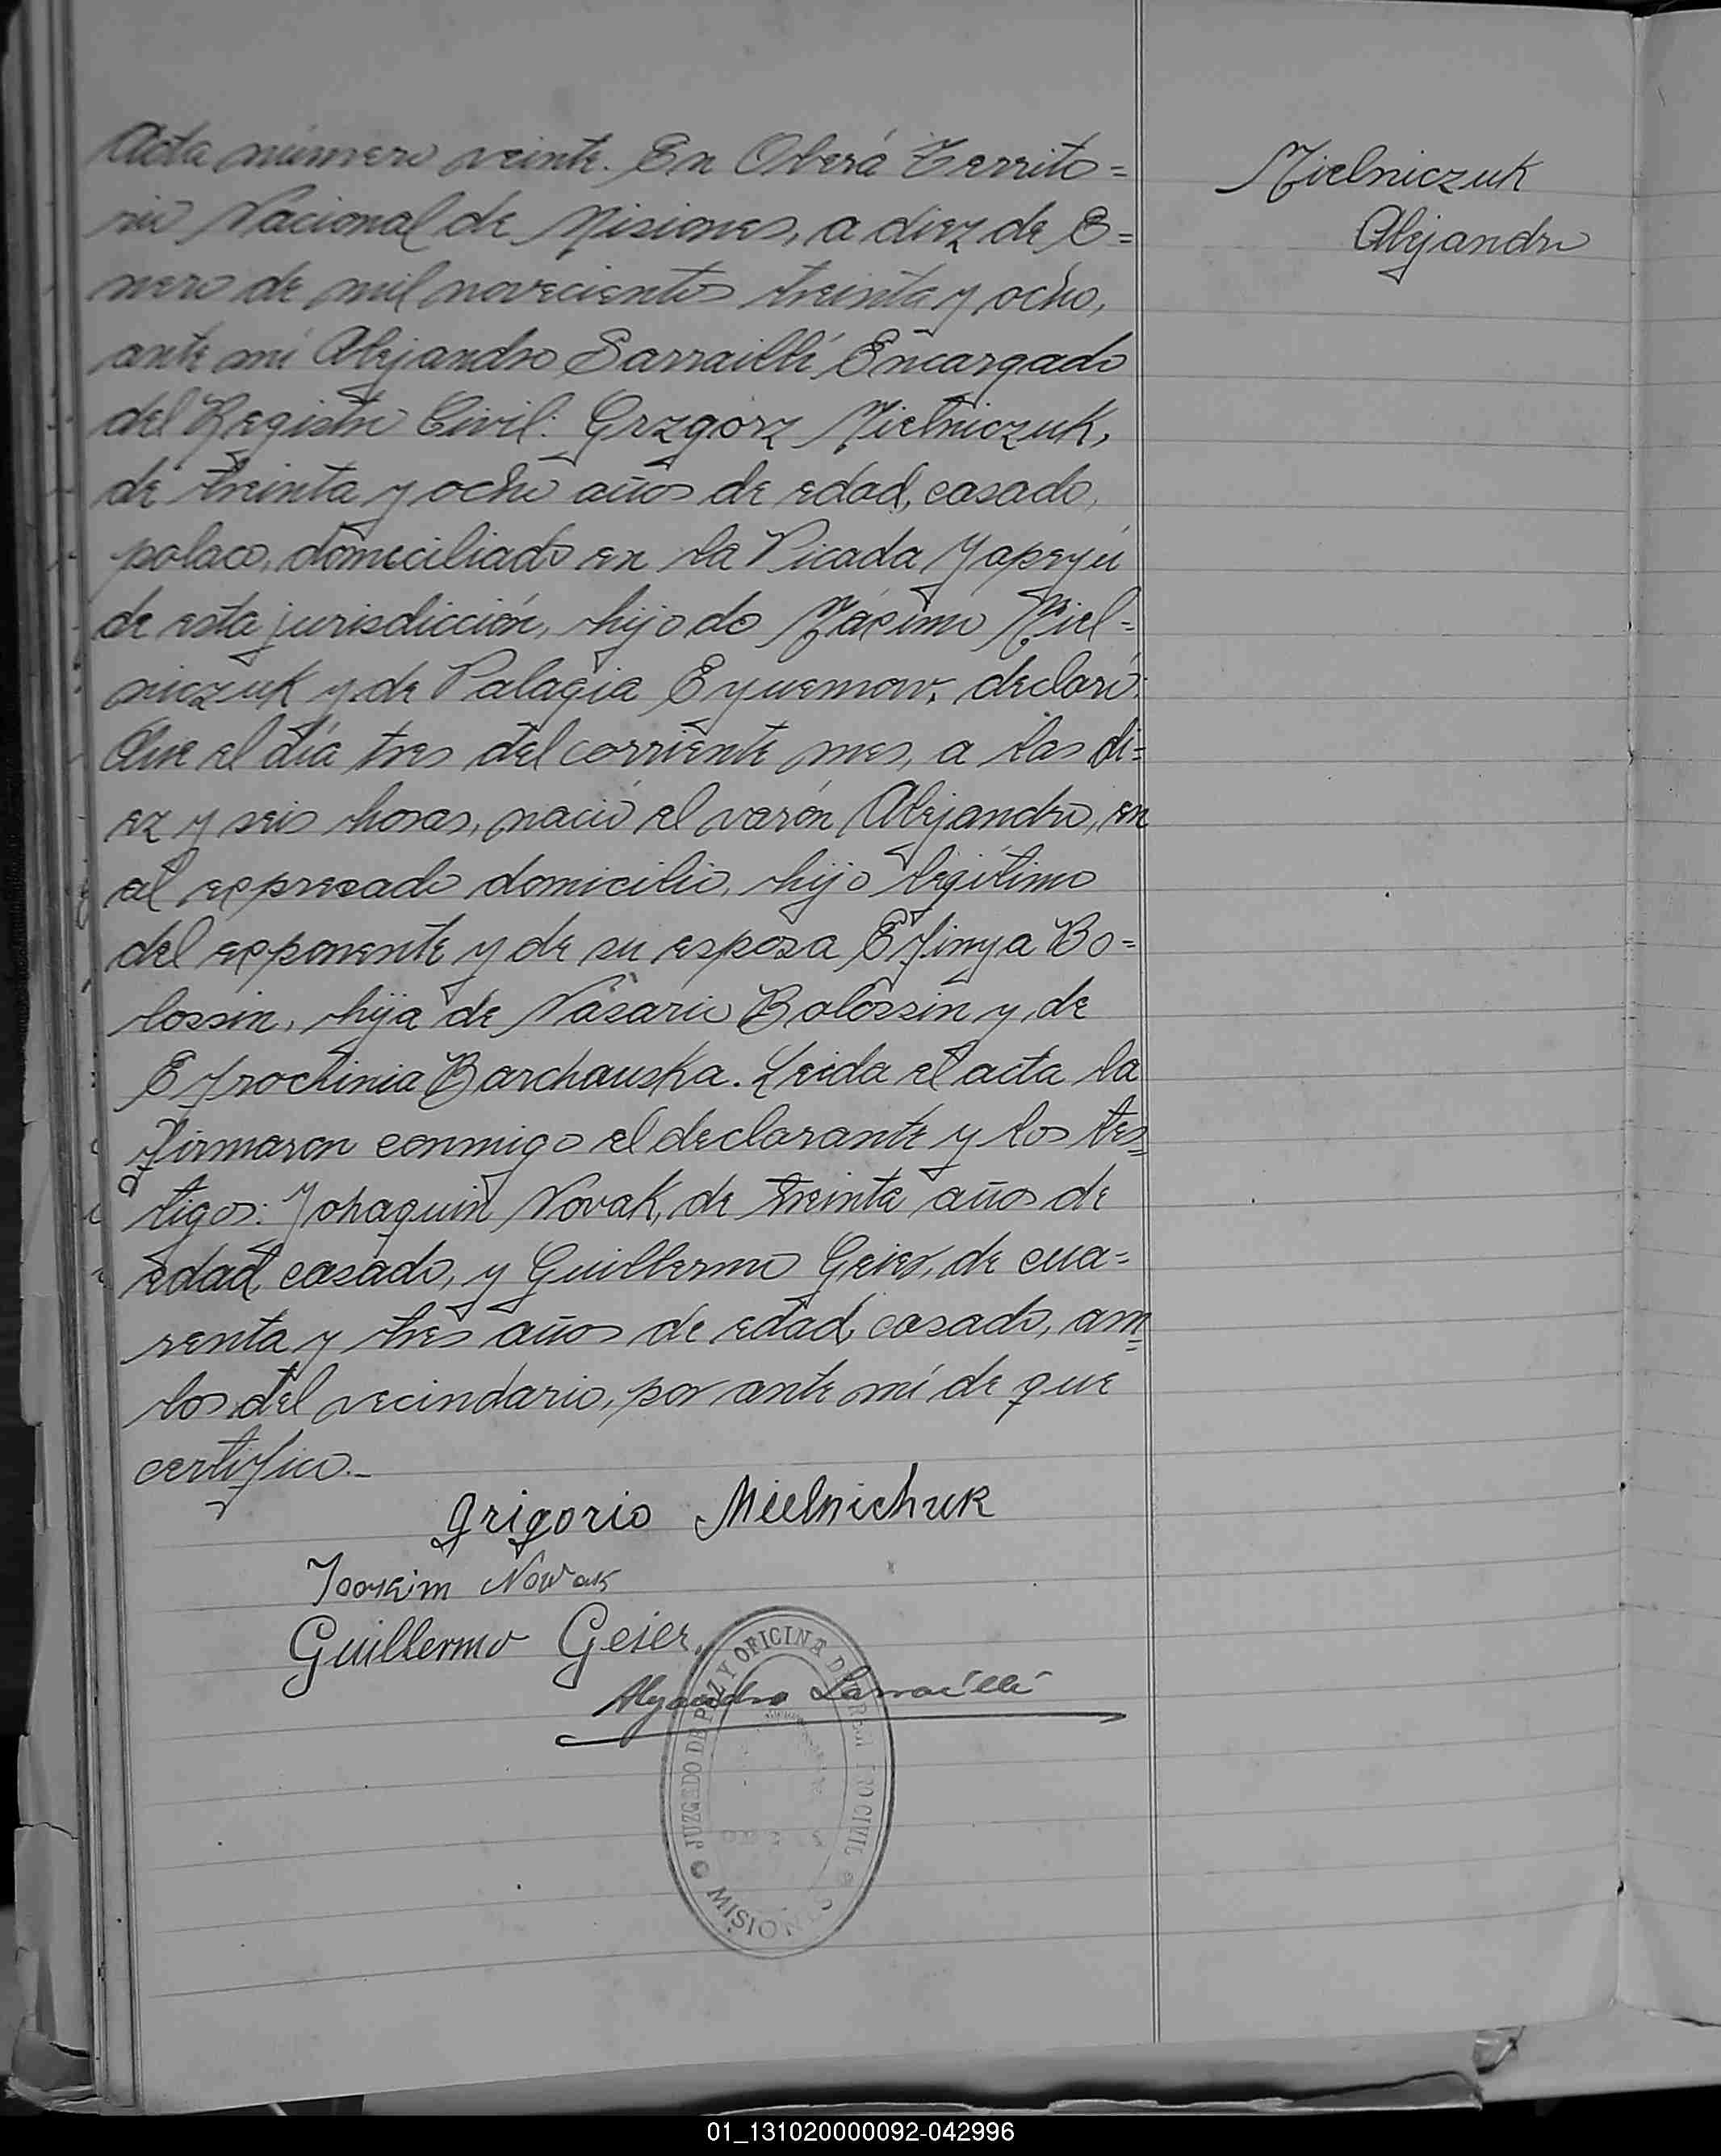 Acta número veinte. En Oberá Territo=
rio Nacional de Misiones, a diez de E=
nero de mil novecientos treinta y ocho,
ante mí Alejandro Sarraillí Encargado
del Registro Civil: Grzgorz Mielniczuk,
de treinta y ocho años de edad, casado,
polaco, domiciliado en la Picada Yapeyú
de esta jurisdicción, hijo de Máximo Miel=
niczuk y de Palagia Eyuemow, declaró:
Que el día tres del corriente mes, a las di=
ez y seis horas, nació el varón Alejandro, en
el expresado domicilio, hijo legítimo
del exponente y de su esposa Efimya Bo=
lossin, hija de Násario Bolossin y de
Efrochinia Barchauska. Leida el acta la
firmaron conmigo el declarante y los tes=
tigos: Johaquin Novak, de treinta años de
edad, casado, y Guillermo Geier, de cua=
renta y tres años de edad, casado, am=
bos del vecindario, por ante mí de que
certifico.-
Mielniczuk
Alejandro
Grigorio Mielnichuk
Joakim Nowak
Guillermo Geier
Alejandro Sarraillí
JUZGADO DE PAZ Y OFICINA DE REGISTRO CIVIL
MISIONES
01_131020000092-042996